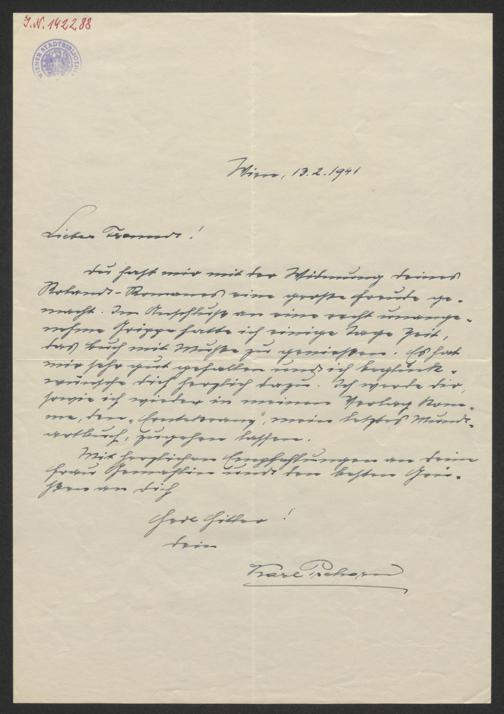 J.N. 142288
WIENER STADTBIBLIOTHEK
Wien, 13.2.1941
Lieber Freund!
Du hast mir mit der Widmung deines
Roland-Romanes eine große Freude ge-
macht. Im Anschluß an eine recht unange-
nehme Grippe hatte ich einige Tage Zeit,
das Buch mit Muße zu genießen. Es hat
mir sehr gut gefallen und ich beglück-
wünsche dich herzlich dazu. Ich werde dir,
sowie ich wieder in meinen Verlag kom-
me, den mein letztes Mund-
artbuch, zugehen lassen.
Mit herzlichen Empfehlungen an deine
Frau Gemahlin und den besten Grü-
ßen an dich
Heil Hitler!
dein
Karl